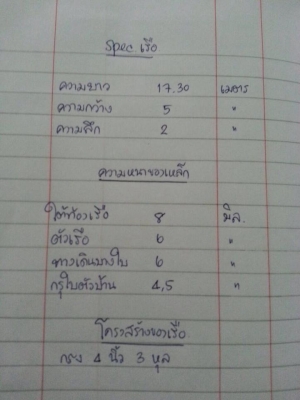 Spec. เรือ
ความยาว 17.30 เมตร
ความกว้าง 5 "
ความลึก 2 "
ความหนาของเหล็ก
ใต้ท้องเรือ 8 มิล.
ตัวเรือ 6 "
ทางเดินบางใบ 6 "
กรุใบตัวบ้าน 4,5 "
โครงสร้างของเรือ
กรง 4 นิ้ว 3 หุล